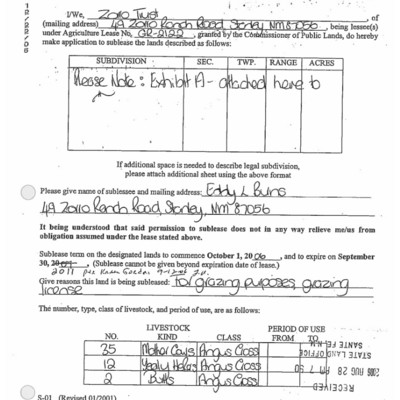 12/22/08
I/We, Zorro Trust, of
(mailing address) 49 Zorro Ranch Road, Stanley, NM 87056, being lessee(s)
under Agriculture Lease No. GR-2122, granted by the Commissioner of Public Lands, do hereby
make application to sublease the lands described as follows:
SUBDIVISION SEC. TWP. RANGE ACRES
Please Note: Exhibit A - attached here to
If additional space is needed to describe legal subdivision,
please attach additional sheet using the above format
Please give name of sublessee and mailing address: Eddy L Burns
49 Zorro Ranch Road, Stanley, NM 87056
It being understood that said permission to sublease does not in any way relieve me/us from
obligation assumed under the lease stated above.
Sublease term on the designated lands to commence October 1, 2006, and to expire on September
30, 20 . (Sublease cannot be given beyond expiration date of lease.)
2011 per
Give reasons this land is being subleased: for grazing purposes, grazing
license
The number, type, class of livestock, and period of use, are as follows:
LIVESTOCK PERIOD OF USE
NO. KIND CLASS FROM TO
35 Mother Cows Angus Cross
12 Yearly Angus Cross
2 Bulls Angus Cross
RECEIVED
2006 AUG 28 AM 7 50
STATE LAND OFFICE
SANTE FE, N.M.
S-01 (Revised 01/2001)